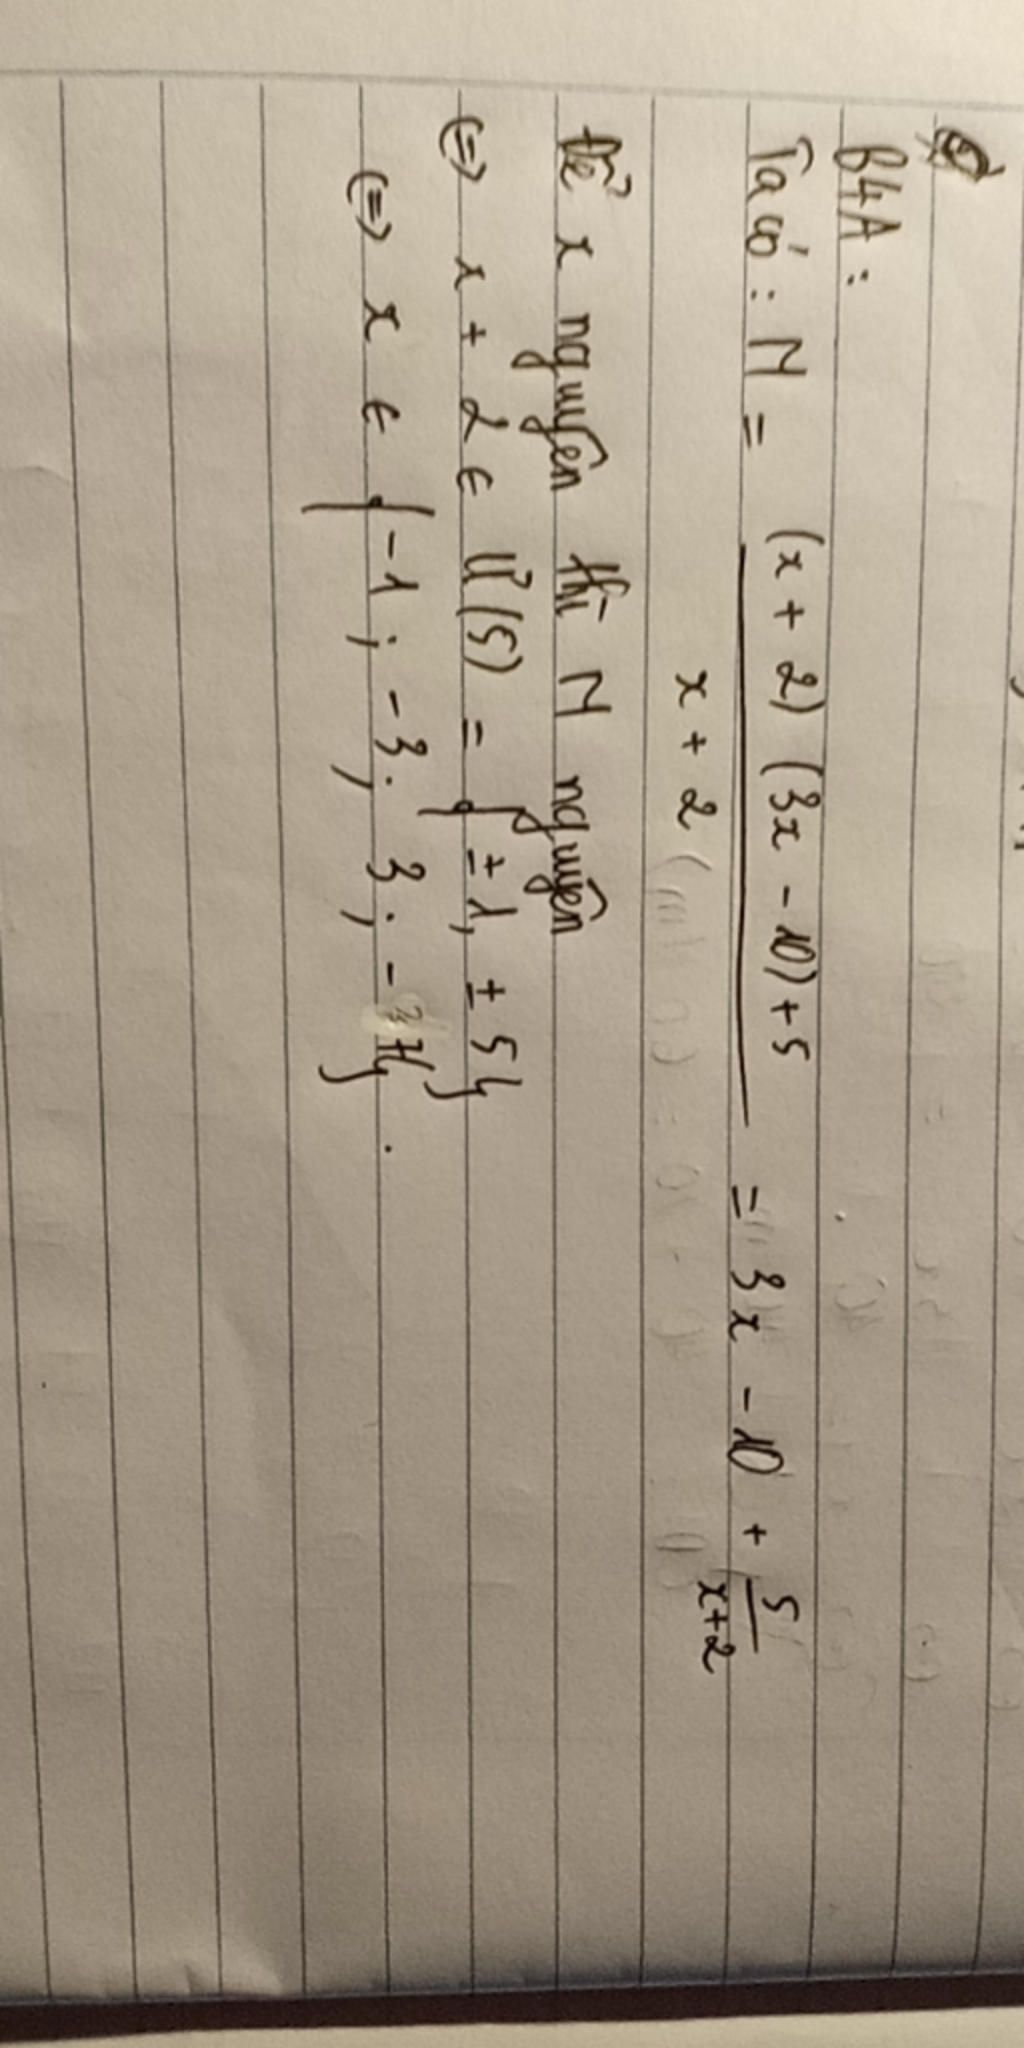 B4A:
Ta có: M = \frac{(x + 2)(3x - 10) + 5}{x + 2} = 3x - 10 + \frac{5}{x+2}
Để x nguyên thì M nguyên
(=) x + 2 ∈ Ư(5) = {±1, ±5}
(=) x ∈ {-1; -3; 3; -7}.